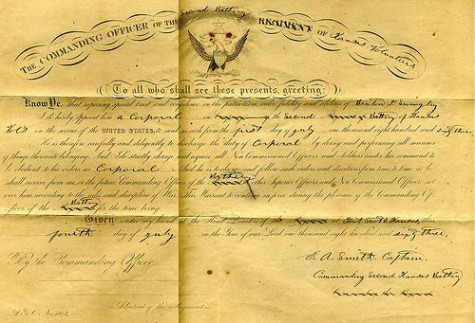 THE COMMANDING OFFICER OF THE Second Battery REGIMENT OF Kansas Volunteers
To all who shall see these presents, greeting:
Know Ye, That reposing special trust and confidence in the patriotism, valor, fidelity and abilities of
I do hereby appoint him a Corporal in the Second Battery of Kansas
Vols in the service of the UNITED STATES, to rank as such from the first day of July one thousand eight hundred and sixty three.
He is therefore carefully and diligently to discharge the duty of Corporal by doing and performing all manner
of things thereunto belonging. And I do strictly charge and require all Non-Commissioned Officers and Soldiers under his command to
be obedient to his orders as Corporal. And he is to observe and follow such orders and directions from time to time as he
shall receive from me, or the future Commanding Officer of the Battery or other Superior Officers and Non-Commissioned Officers set
over him, according to the rules and discipline of War. This Warrant to continue in force during the pleasure of the Commanding Of-
ficer of the Battery for the time being.
Given under my hand at the Head Quarters of the at Fort Scott Kansas this
fourth day of July in the Year of our Lord one thousand eight hundred and sixty three.
By the Commanding Officer
E. A. Smith Captain.
Commanding Second Kansas Battery
Adjutant of the Regiment.